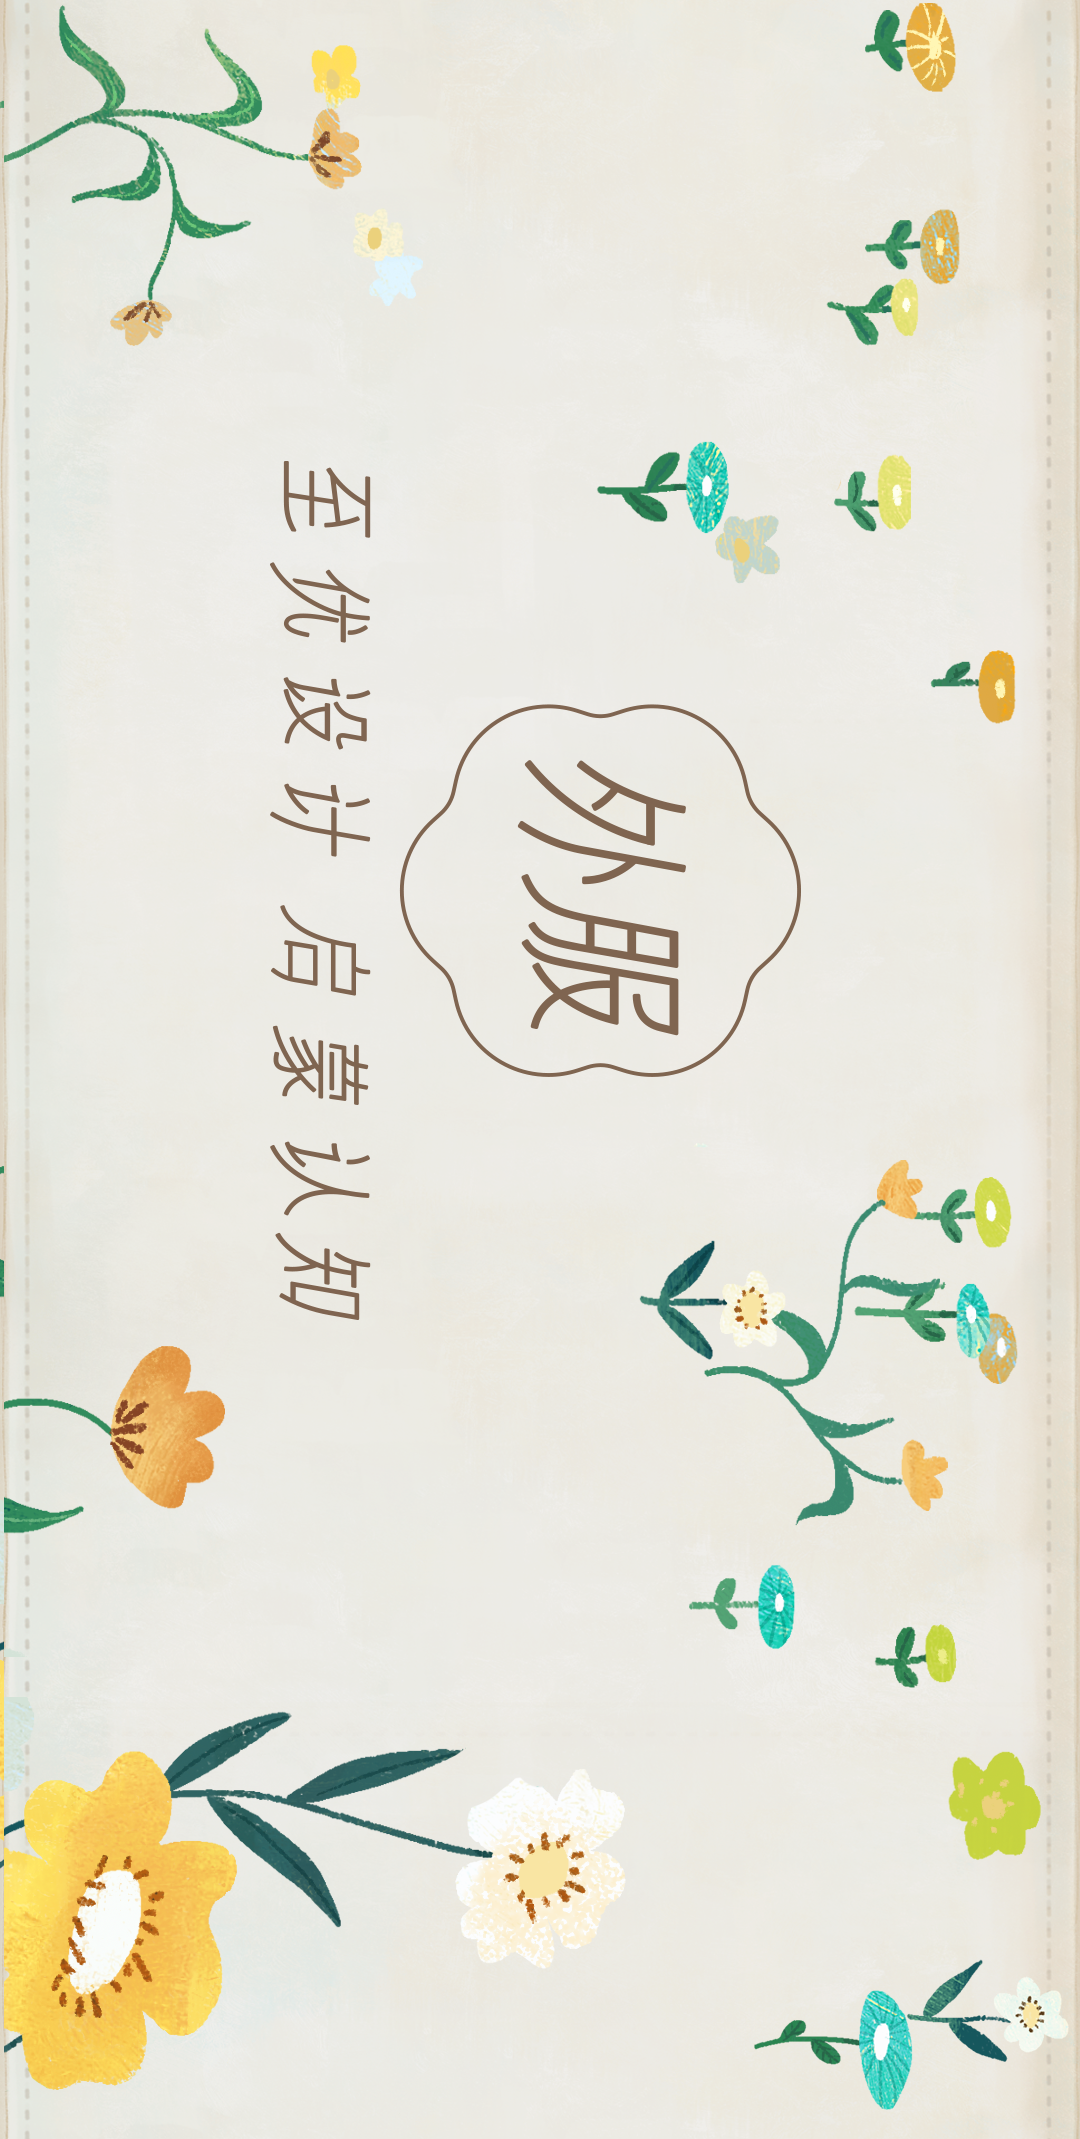 外服
至优设计 启蒙认知